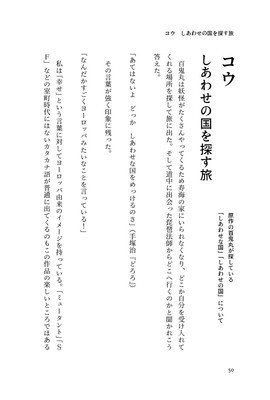 コウ　しあわせの国を探す旅
コウ
しあわせの国を探す旅
原作の百鬼丸が探している
「しあわせな国」「しあわせの国」について
百鬼丸は妖怪がたくさんやってくるため寿海の家にいられなくなり、どこか自分を受け入れて
くれる場所を探して旅に出た。そして道中に出会った琵琶法師からどこへ行くのかと聞かれこう
答えた。
「あてはないよ　どっか　しあわせな国をめっけるのさ」（手塚治『どろろ』）
その言葉が強く印象に残った。
「なんだかすごくヨーロッパみたいなことを言っている！」
私は「幸せ」という言葉に対してヨーロッパ由来のイメージを持っている。「ミュータント」「S
F」などの室町時代にはないカタカナ語が普通に出てくるのもこの作品の楽しいところではある
59